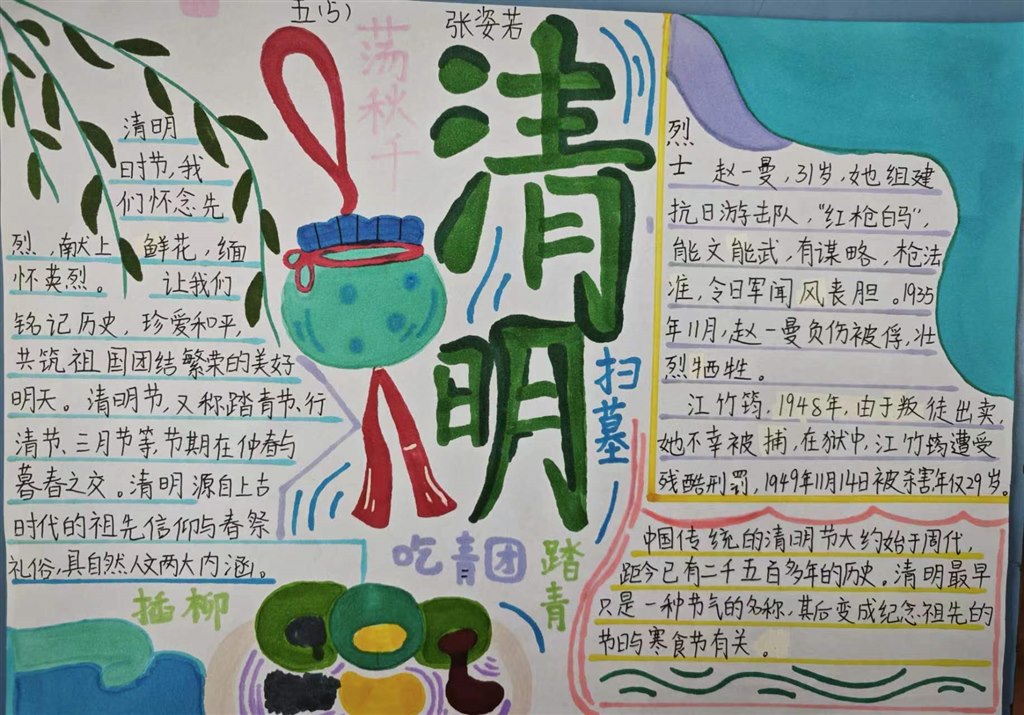 五(5)
张姿若
荡秋千
清明
清明
时节,我
们怀念先
烈,献上鲜花,缅
怀英烈。 让我们
铭记历史,珍爱和平,
共筑祖国团结繁荣的美好
明天。清明节,又称踏青节、行
清节、三月节等,节期在仲春与
暮春之交。清明源自上古
时代的祖先信仰与春祭
礼俗,具自然人文两大内涵。
插柳
吃青团
踏青
扫墓
烈
士 赵一曼,31岁,她组建
抗日游击队,“红枪白马”,
能文能武,有谋略,枪法
准,令日军闻风丧胆。1935
年11月,赵一曼负伤被俘,壮
烈牺牲。
江竹筠,1948年,由于叛徒出卖,
她不幸被捕,在狱中,江竹筠遭受
残酷刑罚,1949年11月14日被杀害年仅29岁。
中国传统的清明节大约始于周代,
距今已有二千五百多年的历史。清明最早
只是一种节气的名称,其后变成纪念祖先的
节日与寒食节有关。